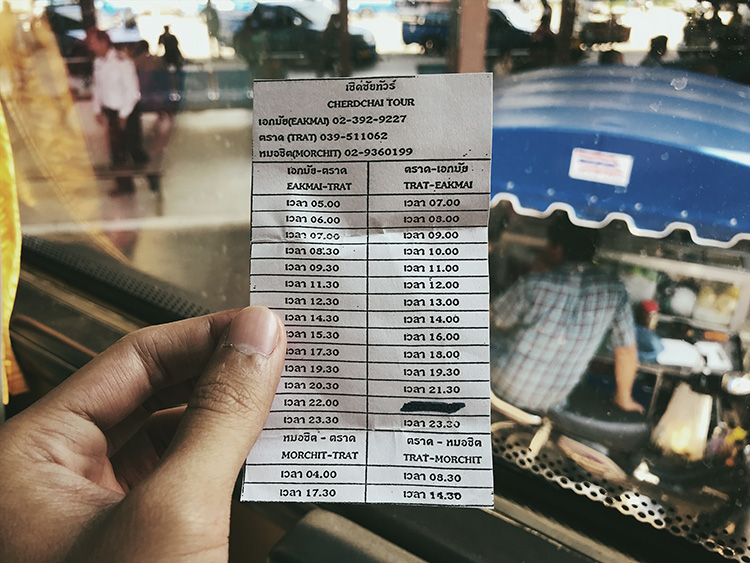 เชิดชัยทัวร์
CHERDCHAI TOUR
เอกมัย(EAKMAI) 02-392-9227
ตราด (TRAT) 039-511062
หมอชิต(MORCHIT) 02-9360199
เอกมัย-ตราด ตราด-เอกมัย
EAKMAI-TRAT TRAT-EAKMAI
เวลา 05.00 เวลา 07.00
เวลา 06.00 เวลา 08.00
เวลา 07.00 เวลา 09.00
เวลา 08.30 เวลา 10.00
เวลา 09.30 เวลา 11.00
เวลา 11.30 เวลา 12.00
เวลา 12.30 เวลา 13.00
เวลา 14.30 เวลา 14.00
เวลา 15.30 เวลา 16.00
เวลา 17.30 เวลา 18.00
เวลา 19.30 เวลา 19.30
เวลา 20.30 เวลา 21.30
เวลา 22.00
เวลา 23.30 เวลา 23.30
หมอชิต - ตราด ตราด - หมอชิต
MORCHIT-TRAT TRAT-MORCHIT
เวลา 04.00 เวลา 08.30
เวลา 17.30 เวลา 14.30